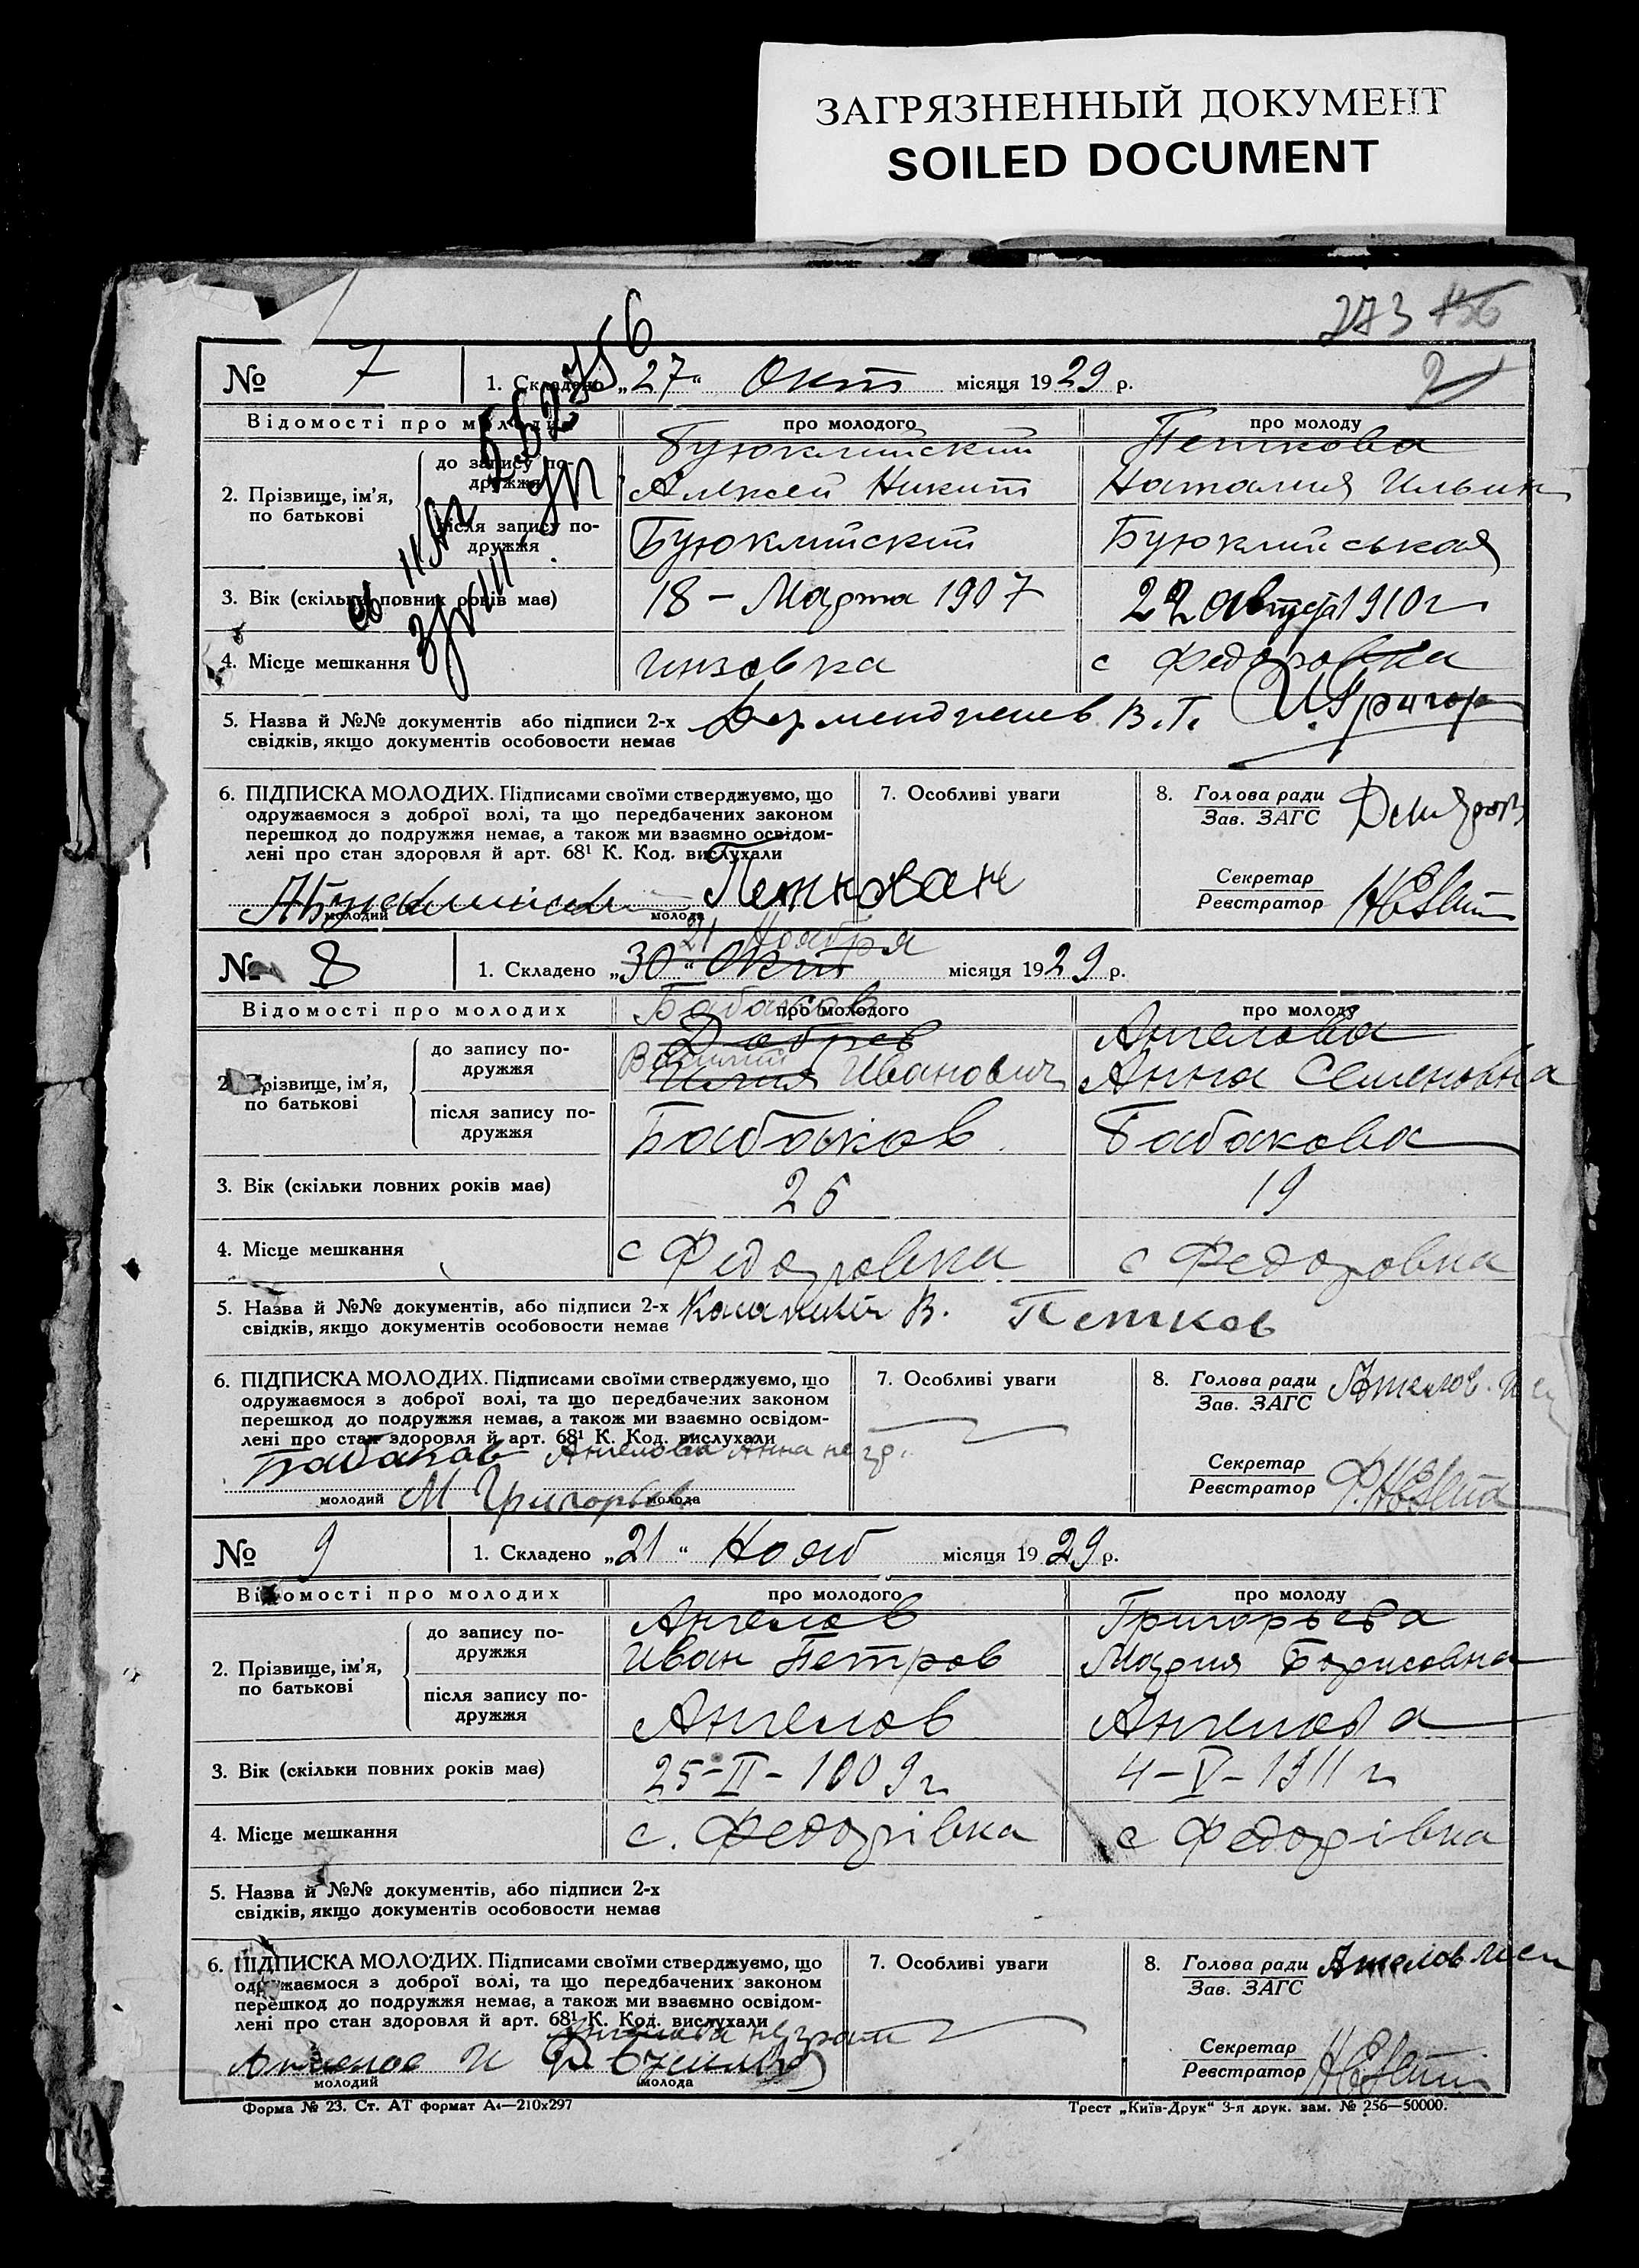 ЗАГРЯЗНЕННЫЙ ДОКУМЕНТ
SOILED DOCUMENT
273 156
2
№ 7 1. Складено „27“ Окт місяця 1929 р.
Відомості про молодих про молодого про молоду
2. Прізвище, ім’я, по батькові
до запису подружжя
Буюклийский Петкова
Алексей Никит Наталия Ильин
після запису подружжя
Буюклийский Буюклийськая
3. Вік (скільки повних років має) 18 – Марта 1907 22 августа 1910 г
4. Місце мешкання Инзовка с Федоровка
5. Назва й №№ документів або підписи 2-х Дермендженев В. Г. И. Григор
свідків, якщо документів особовости немає
6. ПІДПИСКА МОЛОДИХ. Підписами своїми стверджуємо, що 7. Особливі уваги 8. Голова ради
одружаємося з доброї волі, та що передбачених законом Зав. ЗАГС
перешкод до подружжя немає, а також ми взаємно освідом-
лені про стан здоровля й арт. 68¹ К. Код. вислухали Секретар
Реєстратор
молодий молода
21 Ноября
№ 8 1. Складено „30“ Окт місяця 1929 р.
Відомості про молодих про молодого про молоду
2. Прізвище, ім’я, по батькові
до запису подружжя
Бабаков
Добрев Ангелова
Василий
Илия Иванович Анна Семеновна
після запису подружжя
Бабаков Бабакова
3. Вік (скільки повних років має) 26 19
4. Місце мешкання с Федоровка с Федоровка
5. Назва й №№ документів, або підписи 2-х В. Петков
свідків, якщо документів особовости немає
6. ПІДПИСКА МОЛОДИХ. Підписами своїми стверджуємо, що 7. Особливі уваги 8. Голова ради
одружаємося з доброї волі, та що передбачених законом Зав. ЗАГС
перешкод до подружжя немає, а також ми взаємно освідом-
лені про стан здоровля й арт. 68¹ К. Код. вислухали Секретар
Бабаков Ангелова Анна не гр. Реєстратор
молодий М Григорьев молода
№ 9 1. Складено „21“ Нояб місяця 1929 р.
Відомості про молодих про молодого про молоду
2. Прізвище, ім’я, по батькові
до запису подружжя
Ангелов Григорьева
Иван Петров Мария Борисовна
після запису подружжя
Ангелов Ангелова
3. Вік (скільки повних років має) 25-II-1909 г 4-V-1911 г
4. Місце мешкання с. Федорівка с Федорівка
5. Назва й №№ документів, або підписи 2-х
свідків, якщо документів особовости немає
6. ПІДПИСКА МОЛОДИХ. Підписами своїми стверджуємо, що 7. Особливі уваги 8. Голова ради
одружаємося з доброї волі, та що передбачених законом Зав. ЗАГС
перешкод до подружжя немає, а також ми взаємно освідом-
лені про стан здоровля й арт. 68¹ К. Код. вислухали Секретар
Ангелова Реєстратор
Ангелов И
молодий молода
Форма № 23. Ст. АТ формат А₄—210х297 Трест „Київ-Друк“ 3-я друк. зам. № 256—50000.